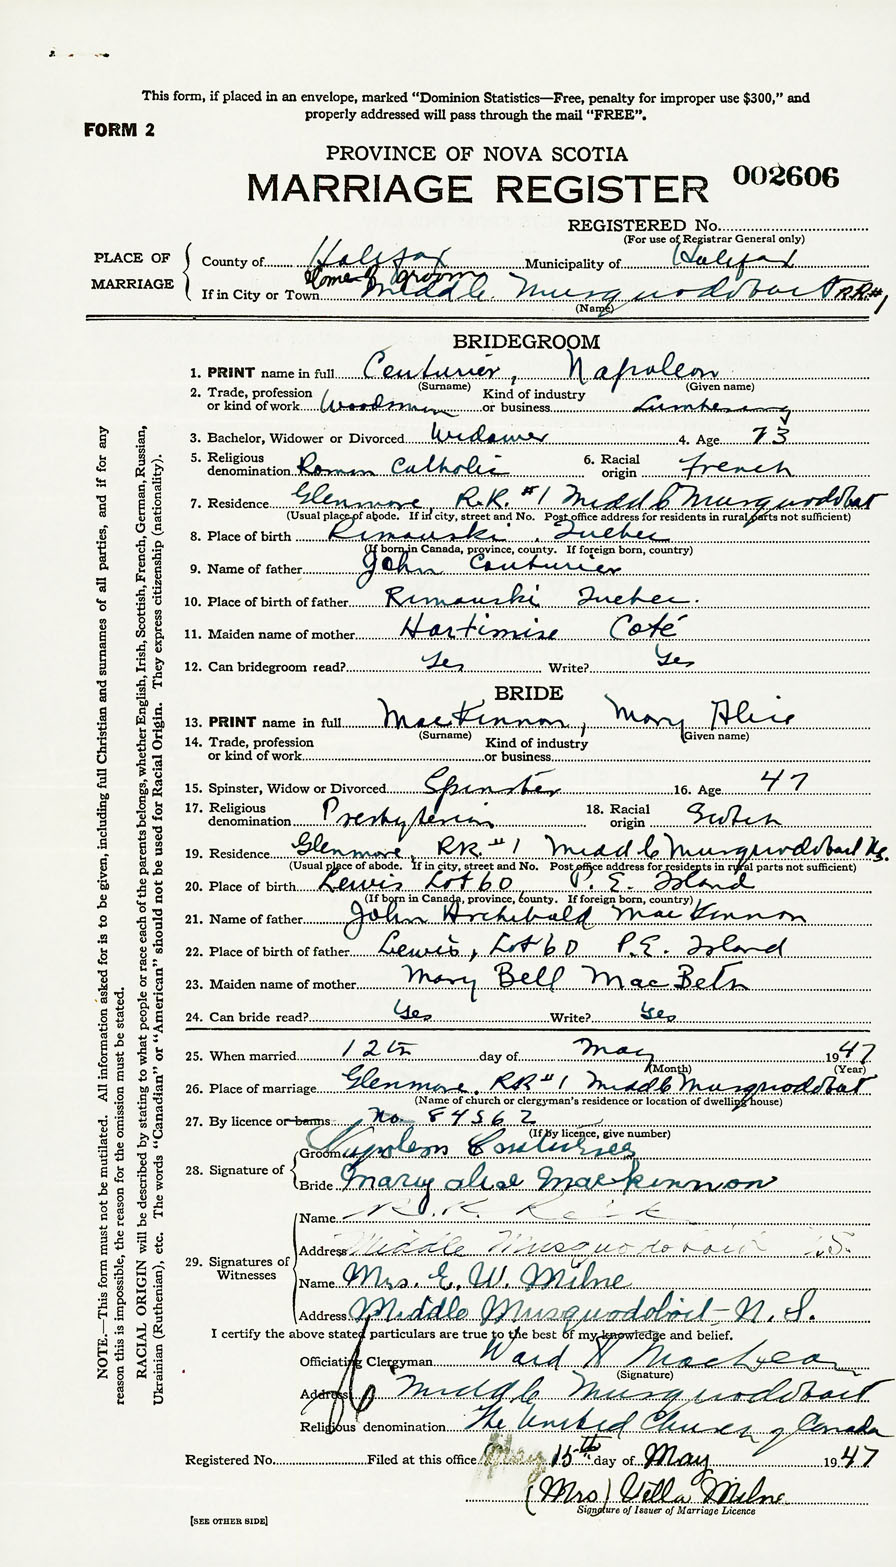 This form, if placed in an envelope, marked “Dominion Statistics—Free, penalty for improper use $300,” and
properly addressed will pass through the mail “FREE”.
FORM 2
PROVINCE OF NOVA SCOTIA
MARRIAGE REGISTER 002606
REGISTERED No.
(For use of Registrar General only)
PLACE OF MARRIAGE
County of Halifax Municipality of Halifax
Home of Groom
If in City or Town Middle Musquodoboit RR#1
(Name)
BRIDEGROOM
1. PRINT name in full Couturier, Napoleon
(Surname) (Given name)
2. Trade, profession or kind of work Woodsman Kind of industry or business Lumbering
3. Bachelor, Widower or Divorced Widower 4. Age 73
5. Religious denomination Roman Catholic 6. Racial origin French
7. Residence Glenmore, R.R. #1 Middle Musquodoboit
(Usual place of abode. If in city, street and No. Post office address for residents in rural parts not sufficient)
8. Place of birth Rimouski, Quebec
(If born in Canada, province, county. If foreign born, country)
9. Name of father John Couturier
10. Place of birth of father Rimouski Quebec.
11. Maiden name of mother Hartimise Coté
12. Can bridegroom read? Yes Write? Yes
BRIDE
13. PRINT name in full MacKinnon, Mary Alice
(Surname) (Given name)
14. Trade, profession or kind of work Kind of industry or business
15. Spinster, Widow or Divorced Spinster 16. Age 47
17. Religious denomination Presbyterian 18. Racial origin Scotch
19. Residence Glenmore, RR #1 Middle Musquodoboit N.S.
(Usual place of abode. If in city, street and No. Post office address for residents in rural parts not sufficient)
20. Place of birth Lewis Lot 60, P. E. Island
(If born in Canada, province, county. If foreign born, country)
21. Name of father John Archibald MacKinnon
22. Place of birth of father Lewis, Lot 60 P.E. Island
23. Maiden name of mother Mary Bell MacBeth
24. Can bride read? Yes Write? Yes
25. When married 12th day of May 1947
(Month) (Year)
26. Place of marriage Glenmore, RR #1 Middle Musquodoboit
(Name of church or clergyman's residence or location of dwelling house)
27. By licence or banns No. 84562
(If by licence, give number)
28. Signature of
Groom Napoleon Couturier
Bride Mary Alice MacKinnon
29. Signatures of Witnesses
Name R. K.
Address Middle Musquodoboit N.S.
Name Mrs. E. W. Milne
Address Middle Musquodoboit - N. S.
I certify the above stated particulars are true to the best of my knowledge and belief.
Officiating Clergyman Ward MacLean
(Signature)
Address Middle Musquodoboit
Religious denomination The United Church of Canada
Registered No. Filed at this office May 15th day of May 1947
(Mrs) Vella Milne
Signature of Issuer of Marriage Licence
[SEE OTHER SIDE]
NOTE.—This form must not be mutilated. All information asked for is to be given, including full Christian and surnames of all parties, and if for any
reason this is impossible, the reason for the omission must be stated.
RACIAL ORIGIN will be described by stating to what people or race each of the parents belongs, whether English, Irish, Scottish, French, German, Russian,
Ukrainian (Ruthenian), etc. The words “Canadian” or “American” should not be used for Racial Origin. They express citizenship (nationality).